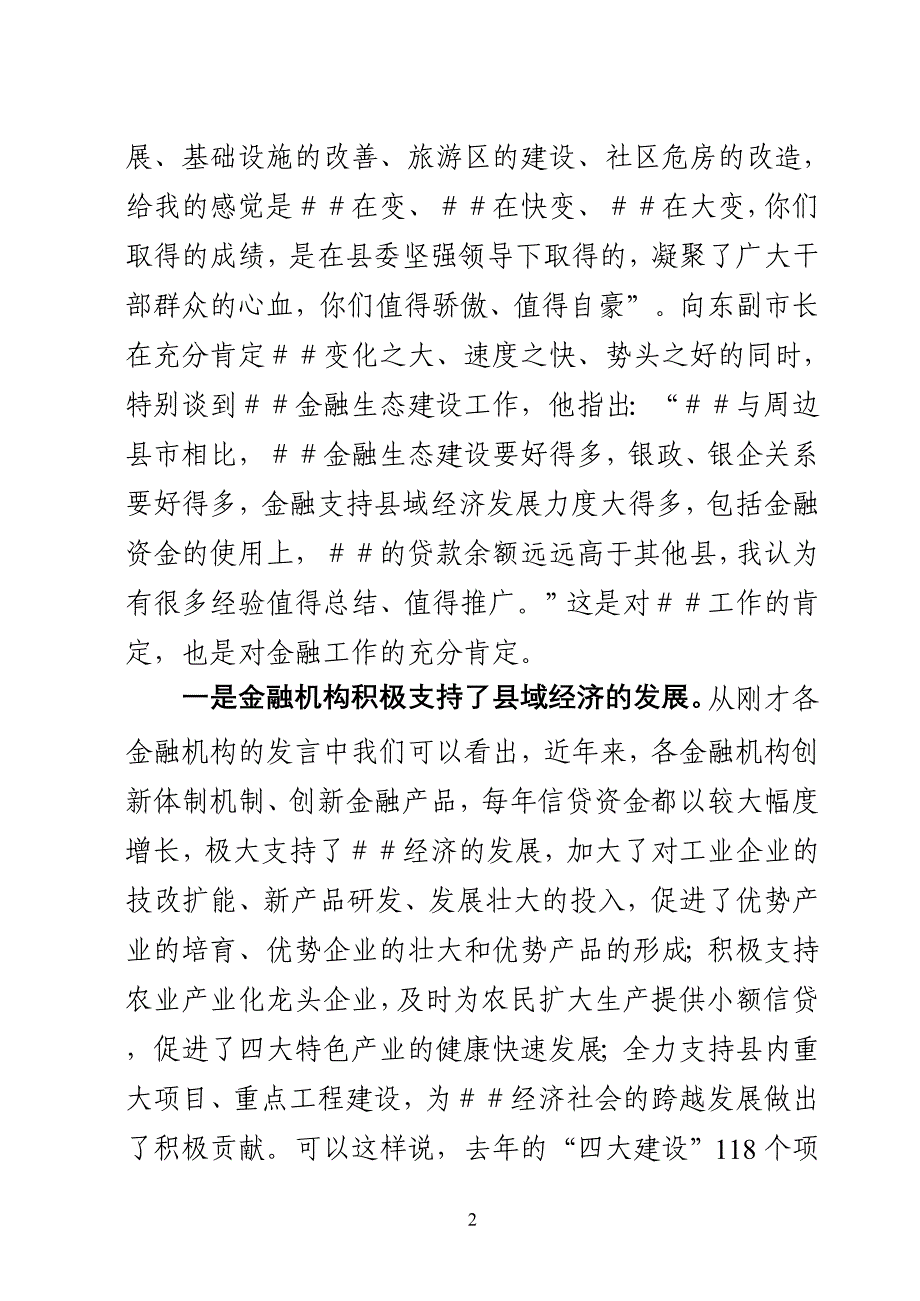 展、基础设施的改善、旅游区的建设、社区危房的改造，
给我的感觉是＃＃在变、＃＃在快变、＃＃在大变，你们
取得的成绩，是在县委坚强领导下取得的，凝聚了广大干
部群众的心血，你们值得骄傲、值得自豪”。向东副市长
在充分肯定＃＃变化之大、速度之快、势头之好的同时，
特别谈到＃＃金融生态建设工作，他指出：“＃＃与周边
县市相比，＃＃金融生态建设要好得多，银政、银企关系
要好得多，金融支持县域经济发展力度大得多，包括金融
资金的使用上，＃＃的贷款余额远远高于其他县，我认为
有很多经验值得总结、值得推广。”这是对＃＃工作的肯
定，也是对金融工作的充分肯定。
一是金融机构积极支持了县域经济的发展。从刚才各
金融机构的发言中我们可以看出，近年来，各金融机构创
新体制机制、创新金融产品，每年信贷资金都以较大幅度
增长，极大支持了＃＃经济的发展，加大了对工业企业的
技改扩能、新产品研发、发展壮大的投入，促进了优势产
业的培育、优势企业的壮大和优势产品的形成；积极支持
农业产业化龙头企业，及时为农民扩大生产提供小额信贷
，促进了四大特色产业的健康快速发展；全力支持县内重
大项目、重点工程建设，为＃＃经济社会的跨越发展做出
了积极贡献。可以这样说，去年的“四大建设”118个项
2